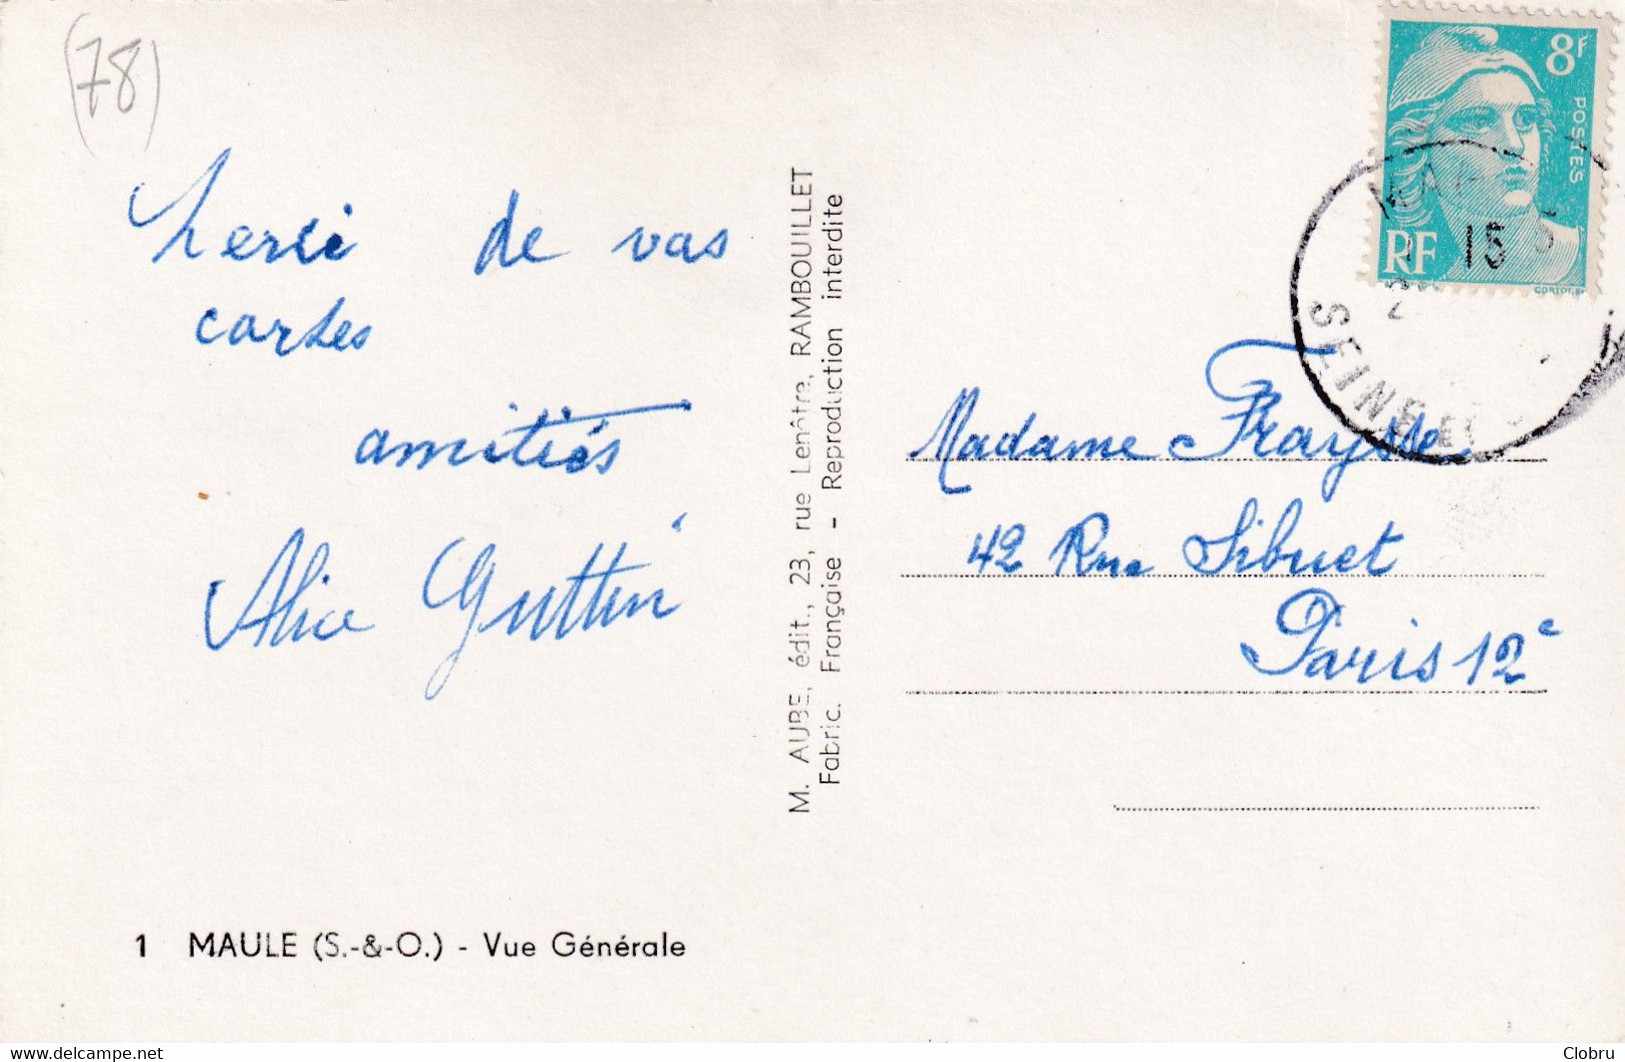 (78)
Merci de vos
cartes
amitiés
Alice Guttin
1 MAULE (S.-&-O.) - Vue Générale
M. AUBE, édit., 23, rue Lenôtre, RAMBOUILLET
Fabric. Française - Reproduction interdite
8F
POSTES
RF
15
SEINE-ET
Madame Fraysse
42 Rue Sibuet
Paris 12e
www.delcampe.net
Clobru